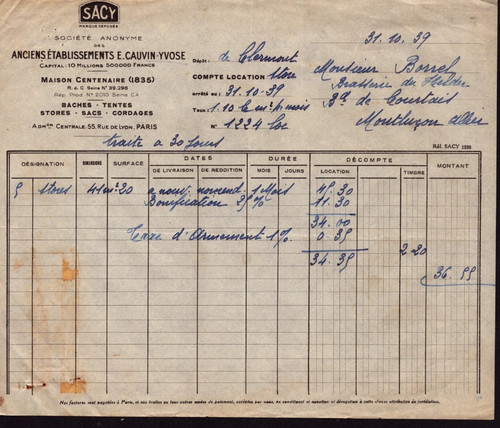 SACY
MARQUE DÉPOSÉE
SOCIÉTÉ ANONYME
DES
ANCIENS ÉTABLISSEMENTS E. CAUVIN-YVOSE
CAPITAL : 10 MILLIONS 500.000 FRANCS
MAISON CENTENAIRE (1835)
R. d. C. Seine N° 39.298
Rép. Prod N° 2010 Seine CA
BACHES - TENTES
STORES - SACS - CORDAGES
ADmon CENTRALE: 55, RUE DE LYON, PARIS
traite à 30 jours
31.10.39
Dépôt : de Clermont
COMPTE LOCATION Store
arrêté au : 31.10.39
Taux : 1.10 le m² p mois
N° 1224 Loc
Monsieur Borrel
Brasserie du Helder
Bd de Courtais
Montluçon Allier
Réf. SACY 1206
DÉSIGNATION DIMENSIONS SURFACE DATES DURÉE DÉCOMPTE MONTANT
DE LIVRAISON DE REDDITION MOIS JOURS LOCATION TIMBRE
5 Stores 41 m² 20 a nouv. nomencl. 1 Mois 45.30
Bonification 25% 11.30
34.00
Taxe d'Armement 1% 0.35
34.35 2.20
36.55
Nos factures sont payables à Paris, et nos traites ou tous autres modes de paiement, débattus par nous, ne constituent ni novation ni dérogation à cette clause attributive de juridiction.